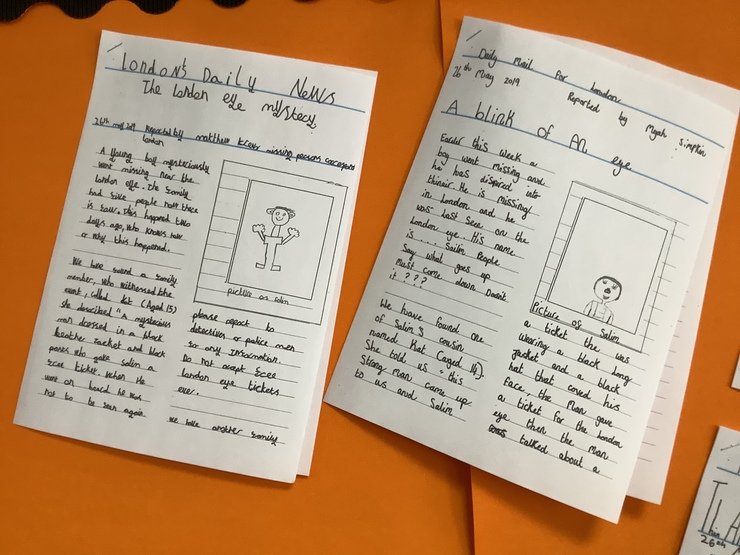 London's Daily News
The London eye mystery
26th may 2019 Reported by matthew missing persons
London
A young boy mysteriously
went missing near the
london eye. The family
had five people now there
is four. This happened two
days ago, who knows how
or why this happened.
We have found a family
member, who witnessed the
event, called Kat (Aged 15)
she described "a mysterious
man dressed in a black
leather jacket and black
who gave salim a
free ticket. When He
went on board he was
not to be seen again.
picture of salim
please report to
detectives or police men
for any information.
Do not accept free
london eye tickets
ever.
we have another family
Daily Mail for London
26th May 2019
Reported by Myah Simpkin
A blink of An eye
Earlier this week a
boy went missing and
he has dispired into
thinair. He is missing
in London and he
was last see on the
London eye. His name
is ... Salim People
Say what goes up
Must come down Doesn't
it ???
We have found one
of Salim's cousin
named Kat (aged 14).
She told us "this
Strong man came up
to us and Salim
Picture of Salim
a ticket the was
waring a black long
jacket and a black
hat that coved his
face, the Man gave
a ticket for the London
eye then the man
talked about a
26th